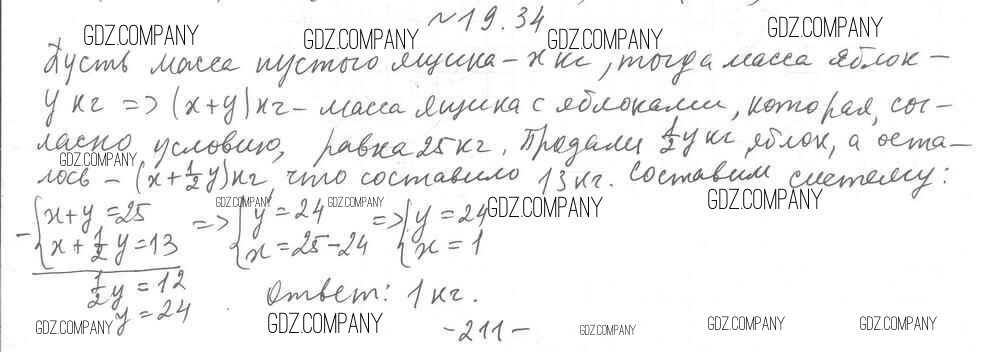 №19.34
GDZ.COMPANY GDZ.COMPANY GDZ.COMPANY GDZ.COMPANY
Пусть масса пустого ящика – x кг, тогда масса яблок –
y кг => (x+y) кг – масса ящика с яблоками, которая, сог-
ласно условию, равна 25 кг. Продали 1/2 y кг яблок, а оста-
GDZ.COMPANY
лось – (x+1/2 y) кг, что составило 13 кг. Составим систему:
GDZ.COMPANY GDZ.COMPANY GDZ.COMPANY GDZ.COMPANY
- { x+y=25 => { y=24 => { y=24
x+1/2 y=13 x=25-24 x=1
1/2 y=12
y=24
Ответ: 1 кг.
GDZ.COMPANY GDZ.COMPANY GDZ.COMPANY GDZ.COMPANY GDZ.COMPANY
-211-